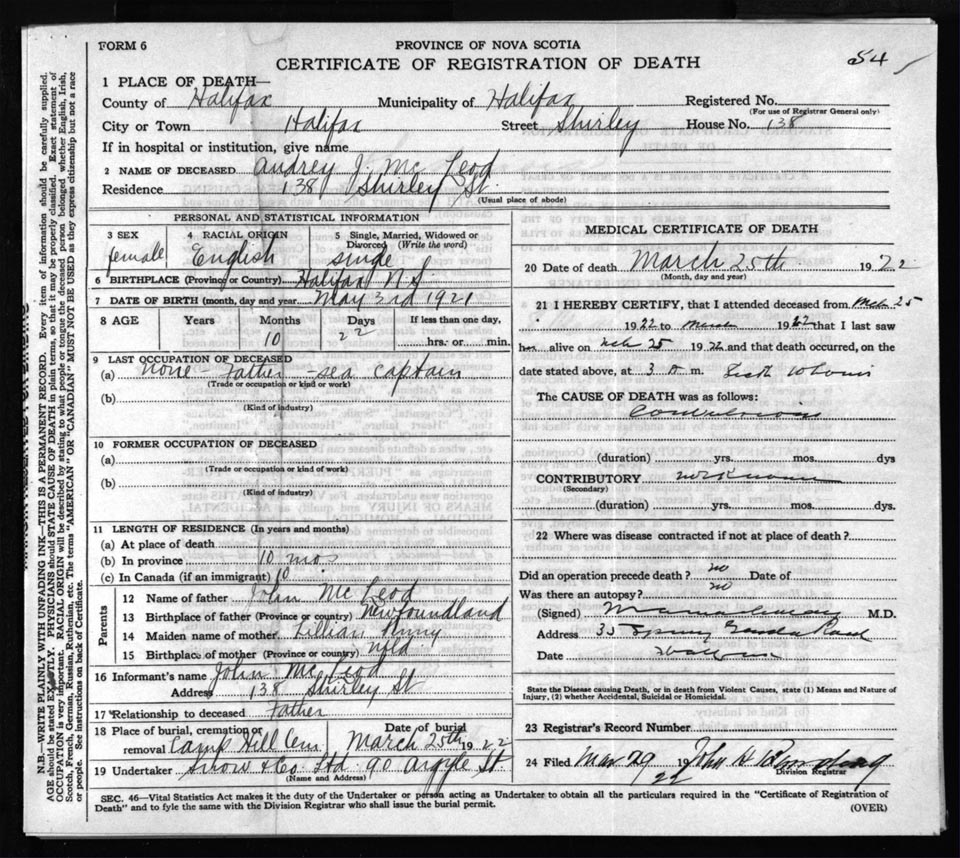 FORM 6
PROVINCE OF NOVA SCOTIA
CERTIFICATE OF REGISTRATION OF DEATH
54
1 PLACE OF DEATH—
County of Halifax Municipality of Halifax Registered No.
(For use of Registrar General only)
City or Town Halifax Street Shirley House No. 138
If in hospital or institution, give name
2 NAME OF DECEASED Audrey J. Mc Leod
Residence 138 Shirley St.
(Usual place of abode)
PERSONAL AND STATISTICAL INFORMATION
3 SEX 4 RACIAL ORIGIN 5 Single, Married, Widowed or Divorced (Write the word)
female English single
6 BIRTHPLACE (Province or Country) Halifax N.S
7 DATE OF BIRTH (month, day and year) May 3rd 1921
8 AGE Years Months Days If less than one day,
10 22 hrs. or min.
9 LAST OCCUPATION OF DECEASED
(a) none - Father - sea captain
(Trade or occupation or kind of work)
(b)
(Kind of industry)
10 FORMER OCCUPATION OF DECEASED
(a)
(Trade or occupation or kind of work)
(b)
(Kind of industry)
11 LENGTH OF RESIDENCE (In years and months)
(a) At place of death
(b) In province 10 mo.
(c) In Canada (if an immigrant) 10
Parents
12 Name of father John Mc Leod
13 Birthplace of father (Province or country) Newfoundland
14 Maiden name of mother Lillian
15 Birthplace of mother (Province or country) Nfld.
16 Informant's name John Mc Leod
Address 138 Shirley St
17 Relationship to deceased Father
18 Place of burial, cremation or removal Camp Hill Cem Date of burial March 25th 1922
19 Undertaker Snow & Co. Ltd 90 Argyle St
(Name and Address)
MEDICAL CERTIFICATE OF DEATH
20 Date of death March 25th 1922
(Month, day and year)
21 I HEREBY CERTIFY, that I attended deceased from Mch 25
1922 to March 1922 that I last saw
her alive on Mch 25 1922 and that death occurred, on the
date stated above, at 3 m.
The CAUSE OF DEATH was as follows:
Convulsions
(duration) yrs. mos. dys
CONTRIBUTORY unknown
(Secondary)
(duration) yrs. mos. dys
22 Where was disease contracted if not at place of death?
Did an operation precede death? no Date of
Was there an autopsy? no
(Signed) M.D.
Address 35 Spring Garden Road
Date
State the Disease causing Death, or in death from Violent Causes, state (1) Means and Nature of
Injury, (2) whether Accidental, Suicidal or Homicidal.
23 Registrar's Record Number
24 Filed Mar 29 1922 John H
Division Registrar
SEC. 46—Vital Statistics Act makes it the duty of the Undertaker or person acting as Undertaker to obtain all the particulars required in the "Certificate of Registration of
Death" and to fyle the same with the Division Registrar who shall issue the burial permit.
(OVER)
N.B.—WRITE PLAINLY WITH UNFADING INK—THIS IS A PERMANENT RECORD. Every item of information should be carefully supplied.
AGE should be stated EXACTLY. PHYSICIANS should STATE CAUSE OF DEATH in plain terms, so that it may be properly classified. Exact statement of
OCCUPATION is very important. RACIAL ORIGIN will be described by stating to what people or tongue the deceased person belonged whether English, Irish,
Scotch, French, German, Russian, Ruthenian, etc. The terms "AMERICAN" OR "CANADIAN" MUST NOT BE USED as they express citizenship but not a race
or people. See instructions on back of Certificate.